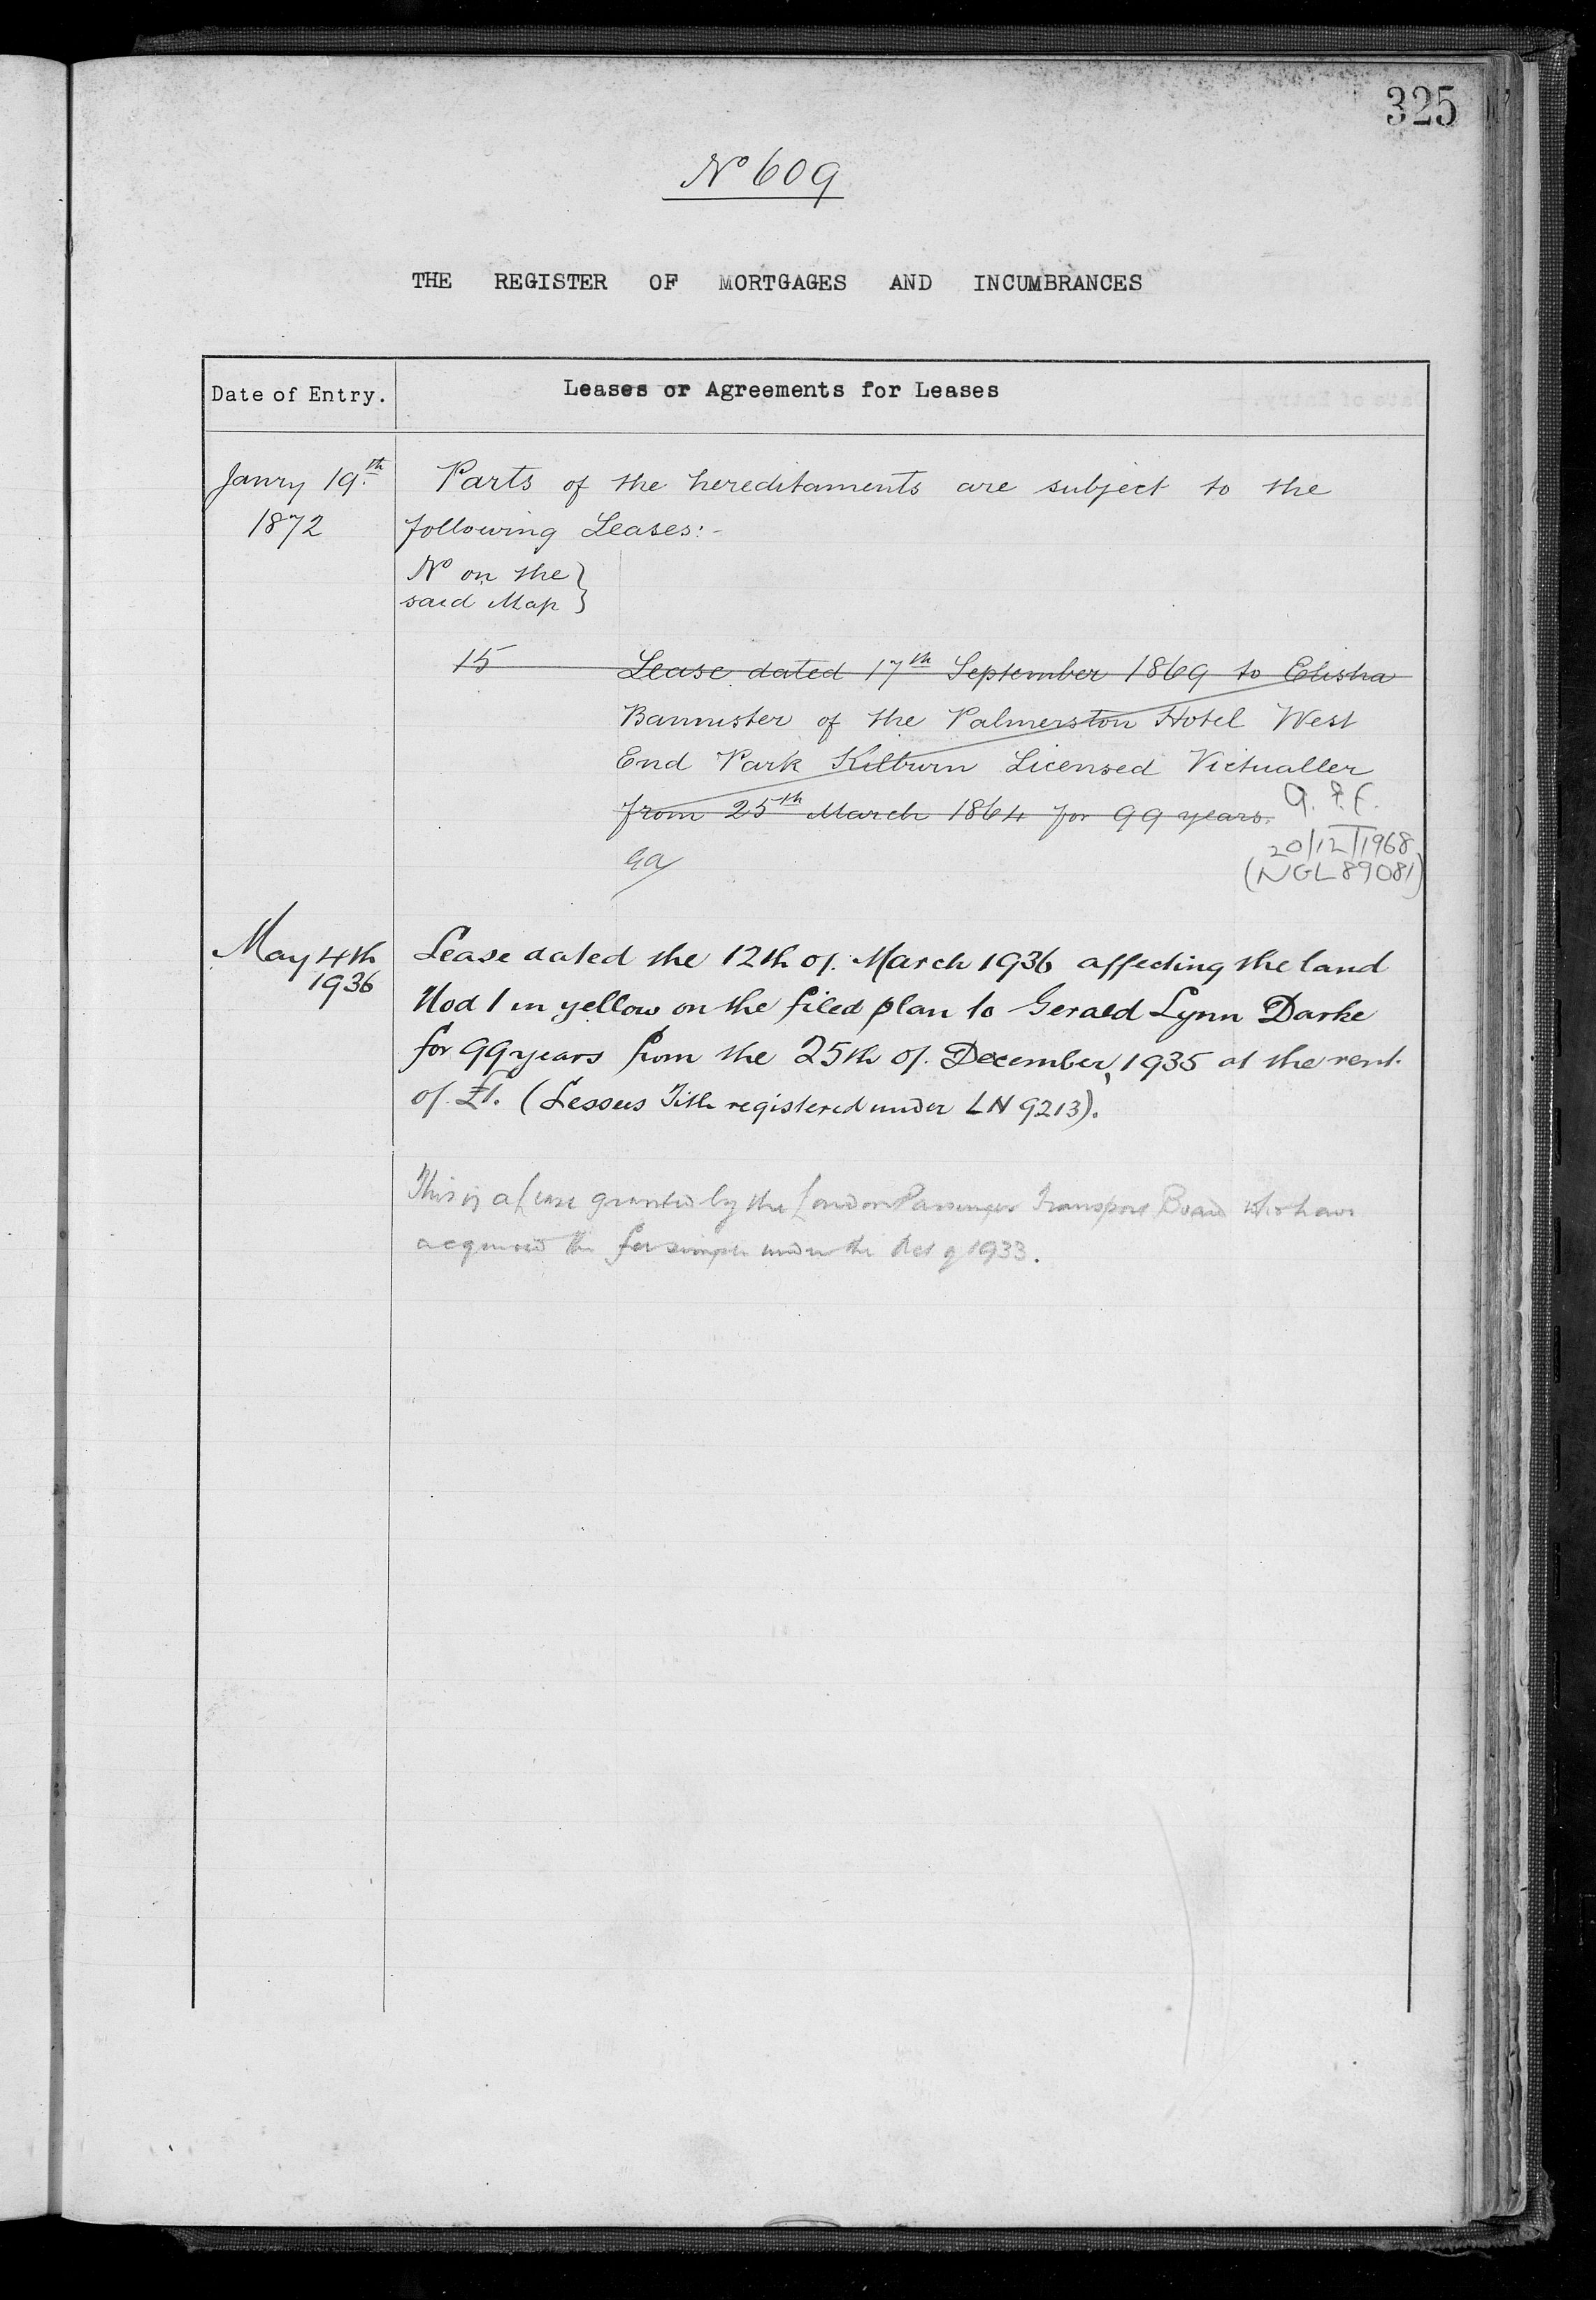 325
No 609
THE REGISTER OF MORTGAGES AND INCUMBRANCES
Date of Entry.
Leases or Agreements for Leases
Janry 19th
1872
Parts of the hereditaments are subject to the
following Leases:-
No on the
said Map
15
Lease dated 17th September 1869 to Elisha
Bannister of the Palmerston Hotel West
End Park Kilburn Licensed Victualler
from 25th March 1864 for 99 years.
20/12/1968
(NGL 89081)
May 4th
1936
Lease dated the 12th of March 1936 affecting the land
Nod 1 in yellow on the filed plan to Gerald Lynn Darke
for 99 years from the 25th of December, 1935 at the rent
of £1. (Lessees Title registered under LN 9213).
This is a lease granted by the London Passenger Transport Board who have
acquired the fee simple under the Act of 1933.